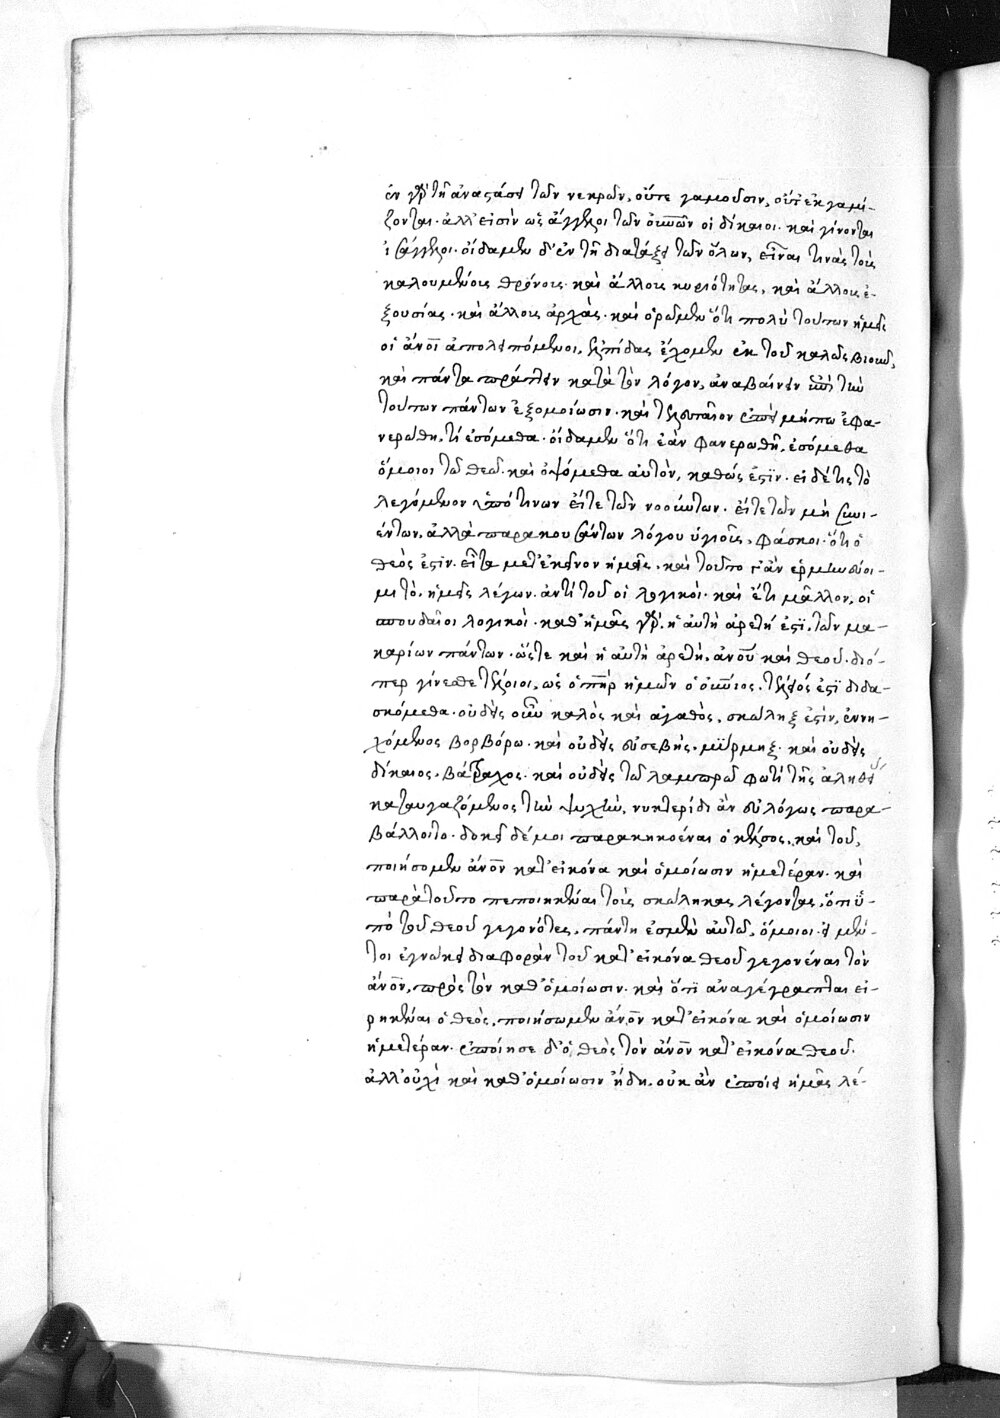 ἐν γὰρ τῆ ἀναστάσει τῶν νεκρῶν, οὔτε γαμοῦσιν, οὔτ' ἐκγαμί-
ζονται· ἀλλ' εἰσὶν ὡς ἄγγελοι τῶν οὐνῶν οἱ δίκαιοι· καὶ γίνονται
ἰσάγγελοι· οἴδαμεν δ' ἐν τῆ διατάξει τῶν ὅλων, εἶναι τινὰς τοὺς
καλουμένους θρόνους· καὶ ἄλλους κυριότητας, καὶ ἄλλους ἐ-
ξουσίας· καὶ ἄλλους ἀρχάς· καὶ ὁρῶμεν ὅτι πολὺ τούτων ἡμεῖς
οἱ ἄνοι ἀπολειπόμενοι, ἐλπίδας ἔχομεν ἐκ τοῦ καλῶς βιοῦν,
καὶ πάντα πράττειν κατὰ τὸν λόγον, ἀναβαίνειν ἐπὶ τὴν
τούτων πάντων ἐξομοίωσιν· καὶ τελευταῖον ἐπεὶ μήπω ἐφα-
νερώθη, τί ἐσόμεθα· οἴδαμεν ὅτι ἐὰν φανερωθῆ, ἐσόμεθα
ὅμοιοι τῶ θεῶ· καὶ ὀψόμεθα αὐτὸν, καθώς ἐστϊν· εἰ δέ τις τὸ
λεγόμενον ὑπό τινων εἴτε τῶν νοούντων· εἴτε τῶν μὴ συνι-
έντων, ἀλλὰ παρακουσάντων λόγου ὑγιοῦς, φάσκοι· ὅτι ὁ
θεὸς ἐστὶν· εἶτα μετ' ἐκεῖνον ἡμεῖς· καὶ τοῦτο γ' ἂν ἑρμηνεύοι-
μι τὸ, ἡμεῖς λέγων· ἀντὶ τοῦ οἱ λογικοὶ· καὶ ἔτι μᾶλλον, οἱ
σπουδαῖοι λογικοὶ· καθ' ἡμᾶς γὰρ, ἡ αὐτὴ ἀρετή ἐστϊ, τῶν μα-
καρίων πάντων· ὥστε καὶ ἡ αὐτὴ ἀρετὴ, ἀνοῦ καὶ θεοῦ· διό-
περ γίνεσθε τέλειοι, ὡς ὁ πηρ ἡμῶν ὁ οὐνιος, τέλειός ἐστϊ διδα-
σκόμεθα· οὐδεὶς οὖν καλὸς καὶ ἀγαθὸς, σκώληξ ἐστὶν, ἐννη-
χόμενος βορβόρω· καὶ οὐδεὶς εὐσεβὴς, μΰρμηξ· καὶ οὐδεὶς
δίκαιος, βάτραχος· καὶ οὐδεὶς τῶ λαμπρῶ φωτὶ τῆς ἀληθεί
καταυγαζόμενος τὴν ψυχὴν, νυκτερίδι ἂν εὐλόγως παρα-
βάλλοιτο· δοκεῖ δέ μοι παρακηκοέναι ὁ κέλσος, καὶ τοῦ,
ποιήσομεν ἄνον κατ' εἰκόνα καὶ ὁμοίωσιν ἡμετέραν· καὶ
παρὰ τοῦτο πεποιηκέναι τοὺς σκώληκας λέγοντας, ὅτι ὑ-
πὸ τοῦ θεοῦ γεγονότες, πάντη ἐσμὲν αὐτῶ, ὅμοιοι· εἰ μέν-
τοι ἐγνώκει διαφορὰν τοῦ κατ' εἰκόνα θεοῦ γεγονέναι τὸν
ἄνον, πρὸς τὸν καθ' ὁμοίωσιν· καὶ ὅτϊ ἀναγέγραπται εἰ-
ρηκέναι ὁ θεὸς, ποιήσωμεν ἄνον κατ' εἰκόνα καὶ ὁμοίωσιν
ἡμετέραν· ἐποίησε δ' ὁ θεὸς τὸν ἄνον κατ' εἰκόνα θεοῦ·
ἀλλ' οὐχὶ καὶ καθ' ὁμοίωσιν ἤδη, οὐκ ἂν ἐποίει ἡμᾶς λέ-